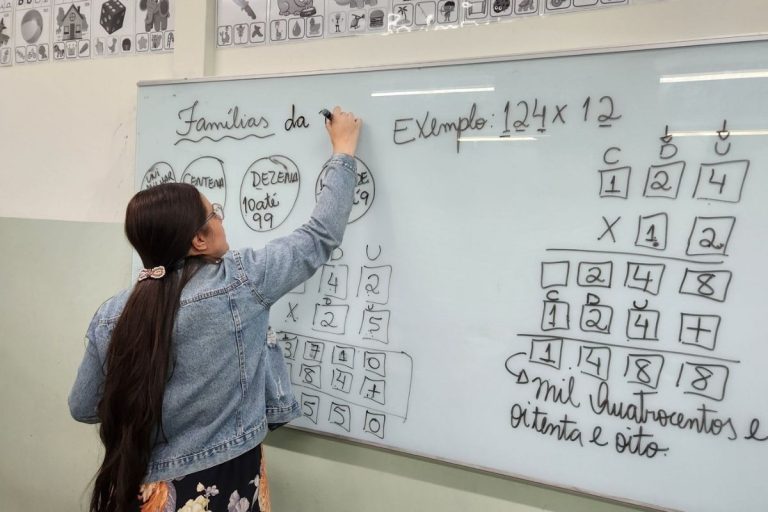 Famílias da
Exemplo: 124 x 12
CENTENA
DEZENA
10 até
99
C D U
1 2 4
X 1 2
2 4 8
C D U
1 2 4 +
1 4 8 8
mil quatrocentos e
oitenta e oito.
U
4 2
D U
X 2 5
3 7 1 0
8 4 +
5 5 0